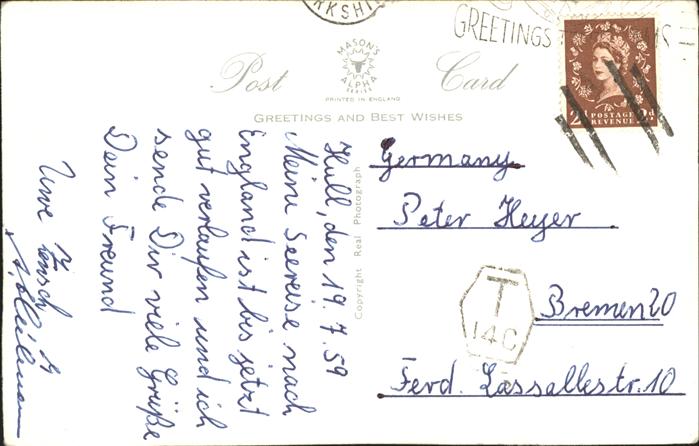 RKSHI
GREETINGS
POSTAGE
REVENUE
Post Card
MASON'S
ALPHA
SERIES
PRINTED IN ENGLAND
GREETINGS AND BEST WISHES
Hull, den 19.7.59
Meine Seereise nach
England ist bis jetzt
gut verlaufen und ich
sende Dir viele Grüße
Dein Freund
Uwe
Copyright Real Photograph
Germany
Peter Heyer
Bremen 20
Ferd. Lassallestr. 10
T
14C